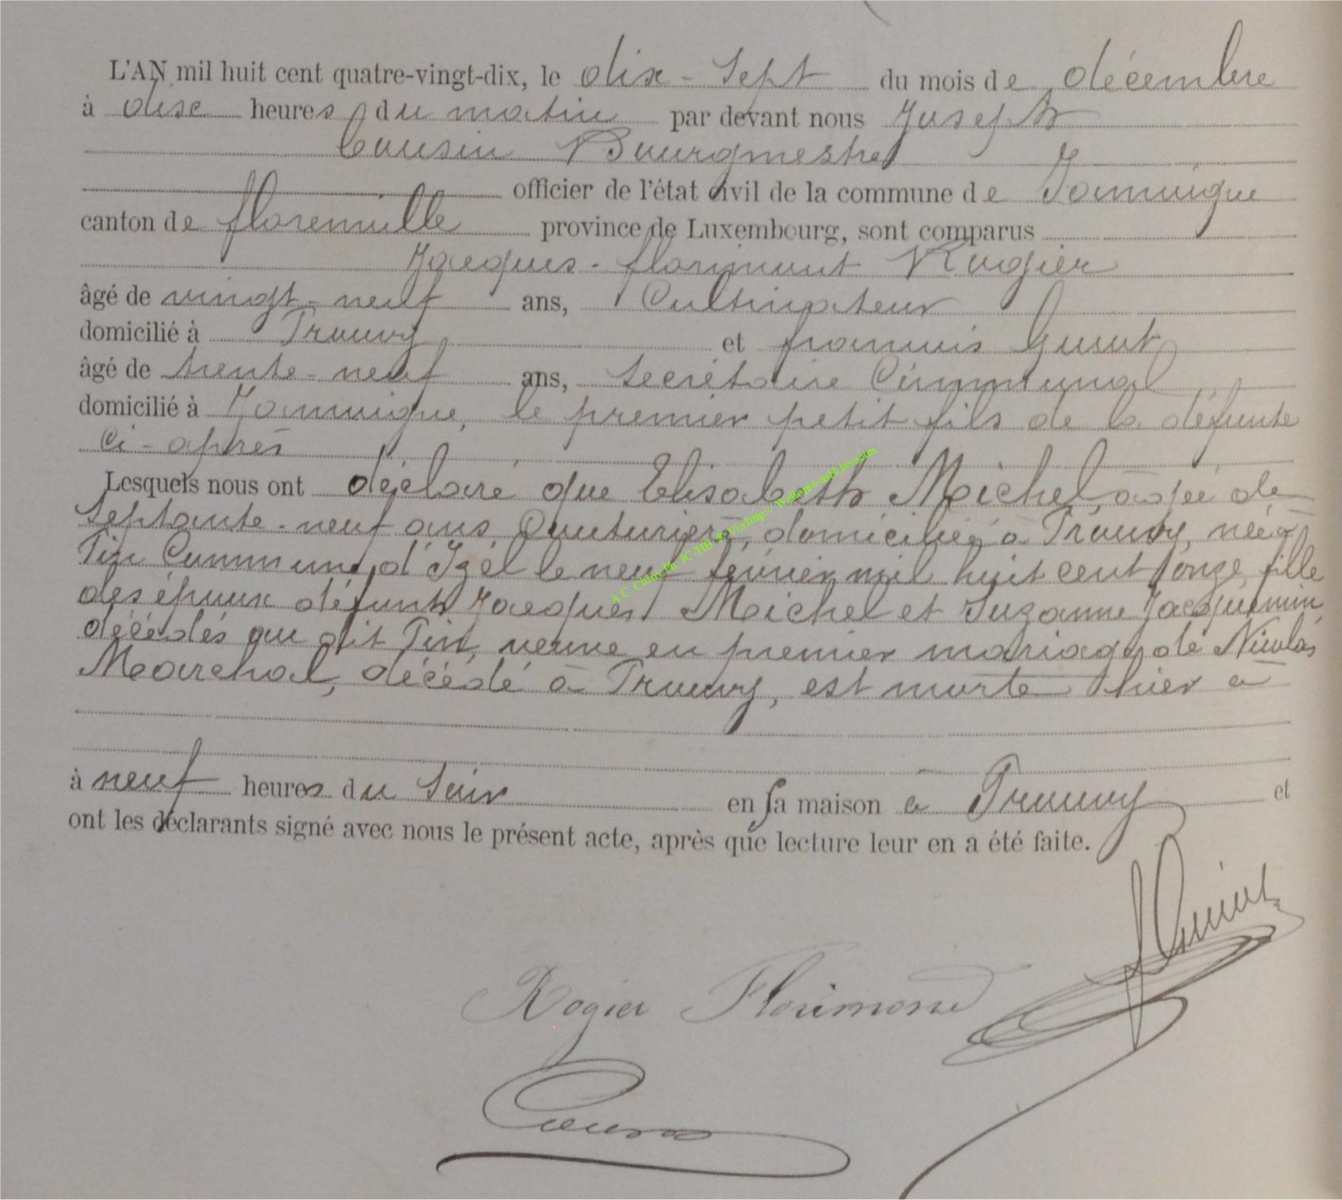 L'AN mil huit cent quatre-vingt-dix, le dix-sept du mois de décembre
à dix heures du matin par devant nous Joseph
Cousin Bourgmestre
officier de l'état civil de la commune de Jamoigne
canton de florenville province de Luxembourg, sont comparus
Jacques-florimont Rogier
âgé de vingt-neuf ans, Cultivateur
domicilié à Prouvy et francois Guiot
âgé de trente-neuf ans, Secrétaire Communal
domicilié à Jamoigne, le premier petit fils de la défunte
ci-après
Lesquels nous ont déclaré que Elisabeth Michel agée de
Septante-neuf ans Couturière, domiciliée à Prouvy, née à
Pin Commune d'Izel le neuf février mil huit cent onze, fille
des époux défunts Jacques Michel et Suzanne Jacquemin
décédés au dit Pin, veuve en premier mariage de Nicolas
Marchal, décédé à Prouvy, est morte hier à
à neuf heures du Soir en sa maison à Prouvy et
ont les déclarants signé avec nous le présent acte, après que lecture leur en a été faite.
f Guiot
Rogier Florimond
Cousin